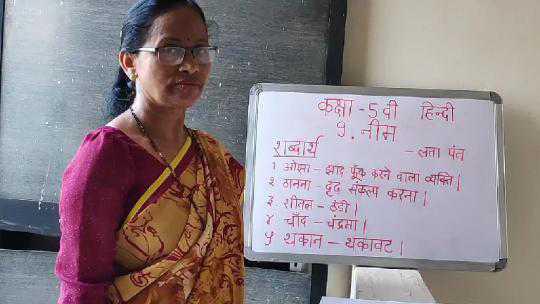 कक्षा - 5 वी हिन्दी
9. नीम
शब्दार्थ - लता पंत
१ ओझा - झाड़ फूँक करने वाला व्यक्ति।
२ ठानना - दृढ़ संकल्प करना।
३ शीतल - ठंडी।
४ चाँद - चंद्रमा।
५ थकान - थकावट।